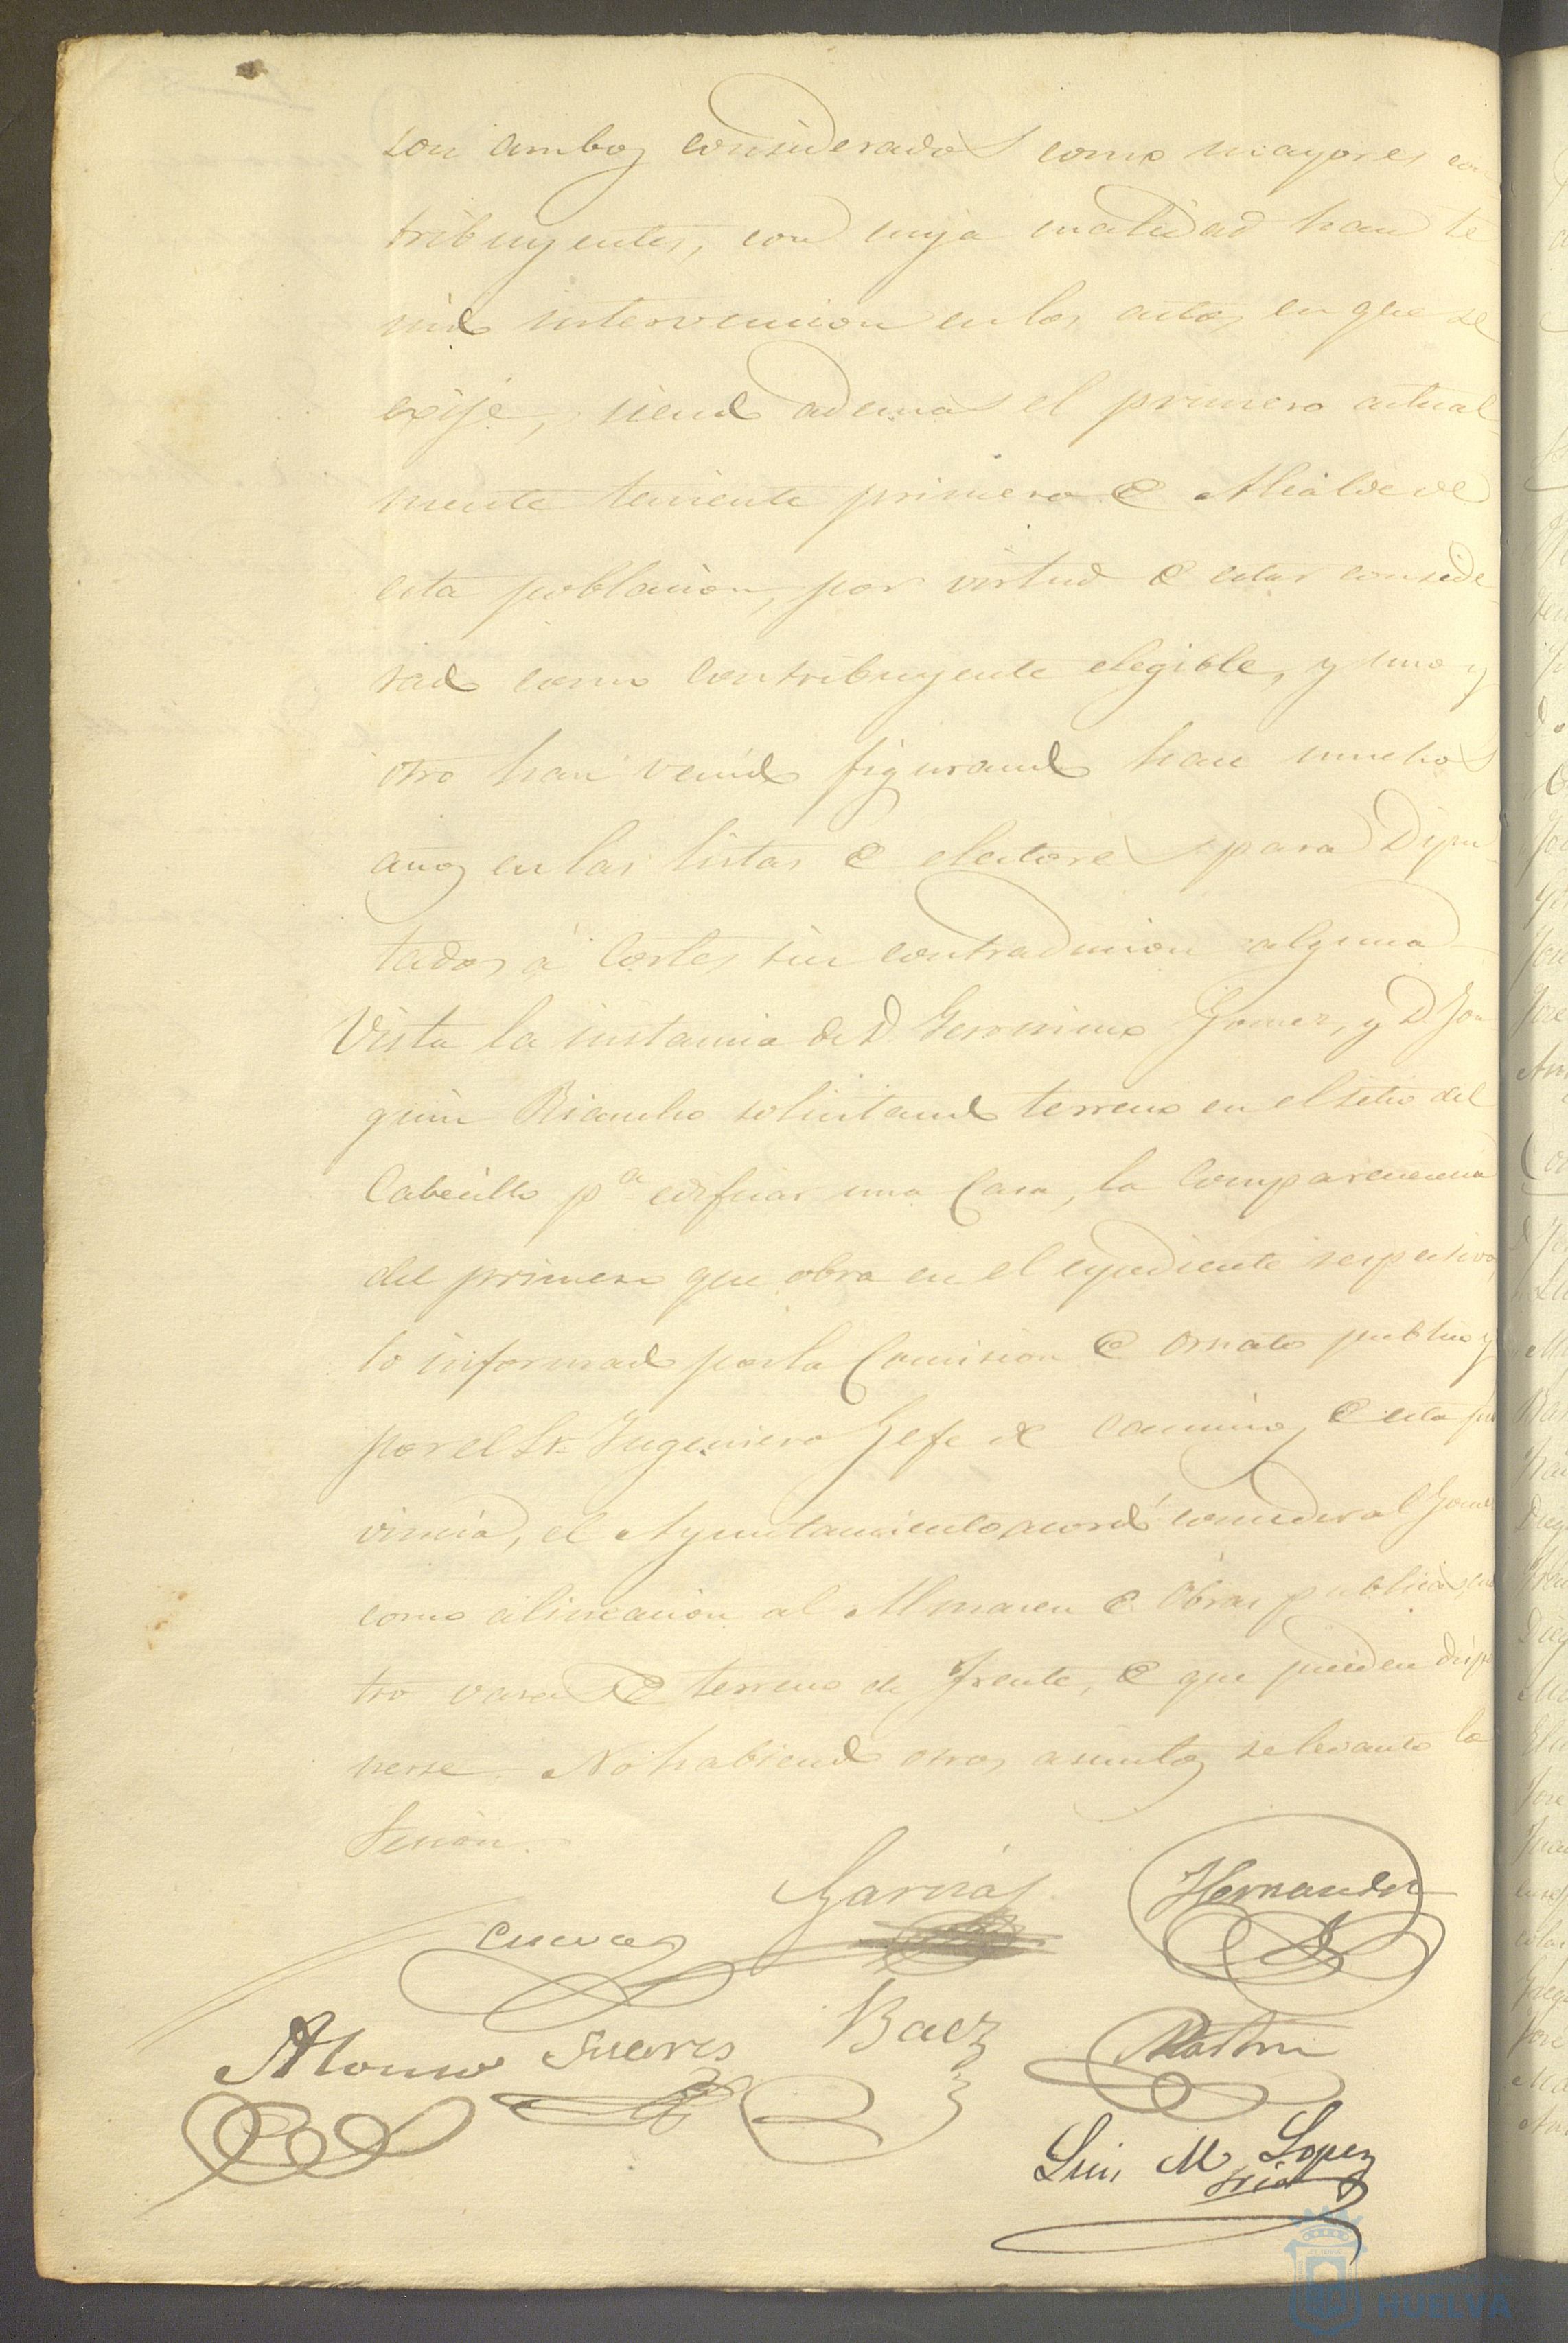 son ambos considerados como mayores con
tribuyentes, con cuya cualidad han te
nido intervencion en los actos en que se
exije, siendo ademas el primero actual
mente teniente primero de Alcalde de
esta poblacion, por virtud de estar conside
rado como contribuyente elegible, y uno y
otro han venido figurando hace muchos
años en las listas de electores para Dipu
tados á Cortes sin contradiccion alguna
Vista la instancia de D. Geronimo Gomez, y D. Joa
quin Riancho solicitando terreno en el sitio del
Cabecillo pa edificar una Casa, la comparecencia
del primero que obra en el espediente respectivo,
lo informado por la Comision de ornato publico y
por el Sr Ingeniero Gefe de caminos de esta pro
vincia, el Ayuntamiento acordó conceder al Gomez
como alineacion al Almacen de Obras publicas, cua
tro varas de terreno de frente, de que pueden dispo
nerse. No habiendo otros asuntos se levanto la
Sesion.
Garcias
Hernandez
Cuevas
Alonso
Suares
Baez
Martin
Luis M Lopez
Srio
HUELVA